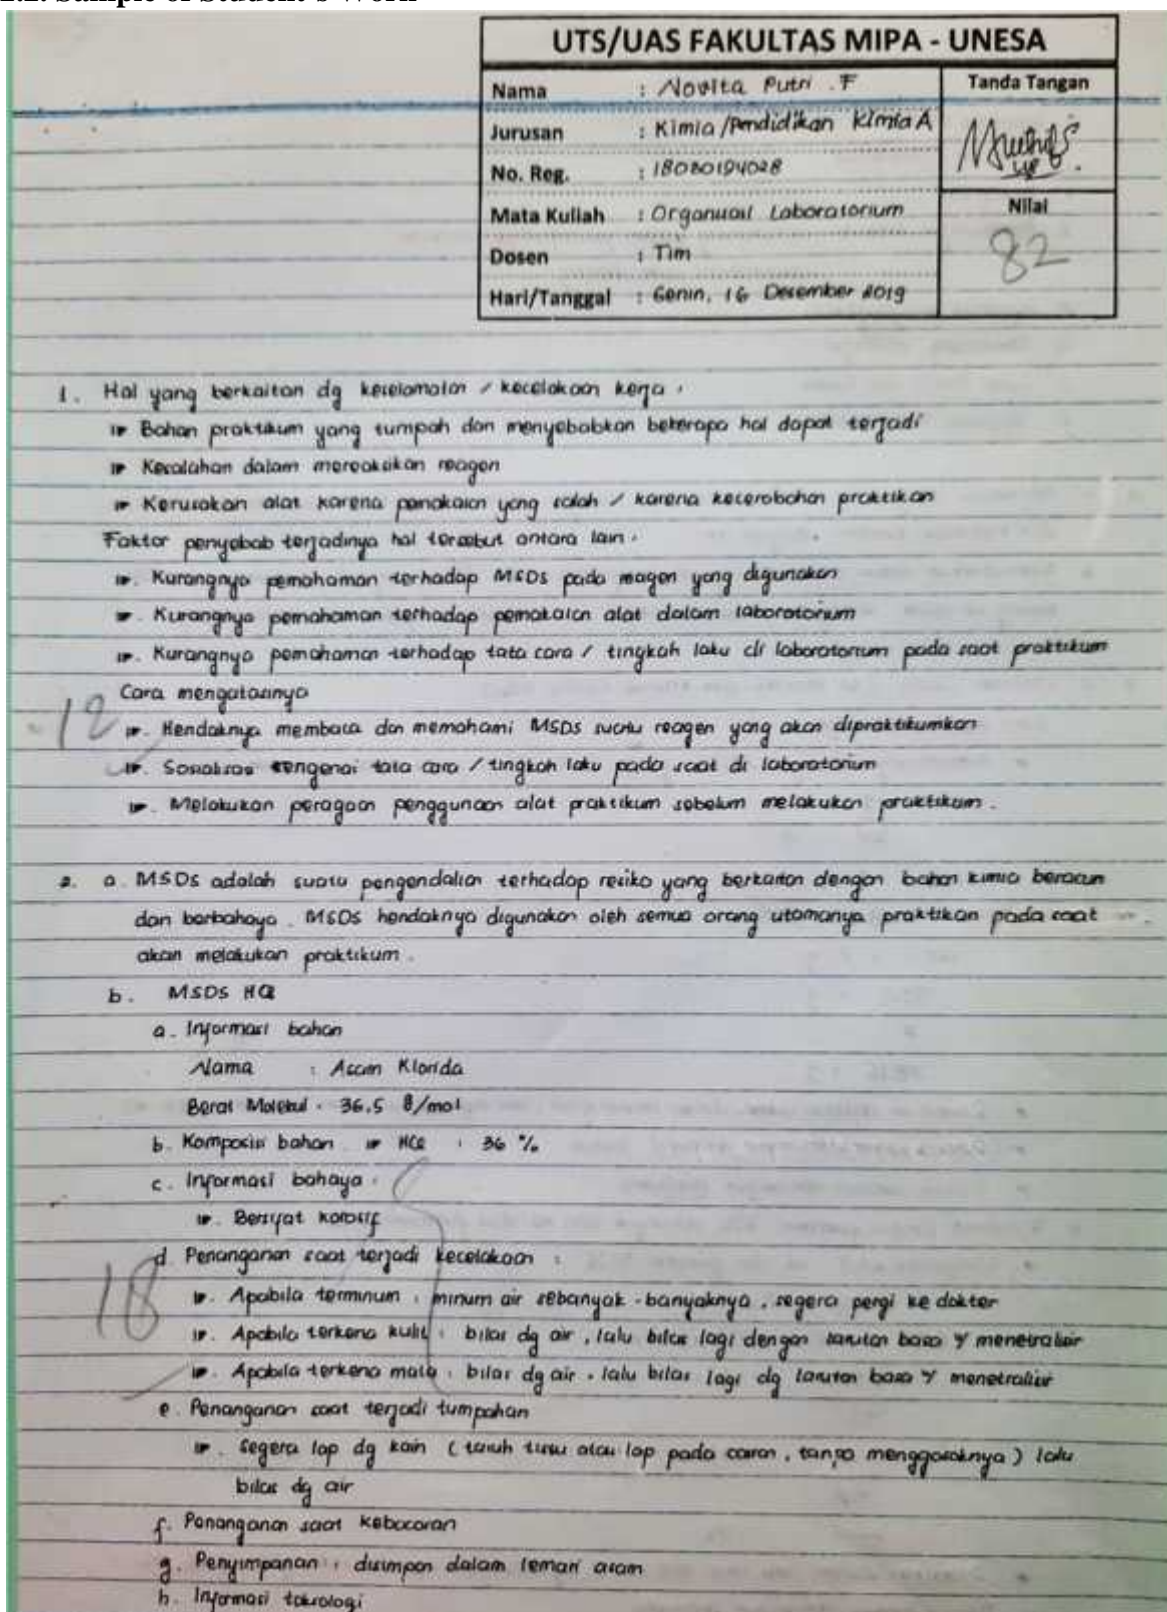 UTS/UAS FAKULTAS MIPA - UNESA
Nama : Novita Putri . F
Tanda Tangan
Jurusan : Kimia / Pendidikan Kimia A
No. Reg. : 18030194028
Mata Kuliah : Laboratorium
Nilai
82
Dosen : Tim
Hari/Tanggal : Senin, 16 Desember 2019
1. Hal yang berkaitan dg keselamatan / kecelakaan kerja :
Bahan praktikum yang tumpah dan menyebabkan beberapa hal dapat terjadi
Kesalahan dalam mereaksikan reagen
Kerusakan alat karena pemakaian yang salah / karena kecerobohan praktikan
Faktor penyebab terjadinya hal tersebut antara lain :
Kurangnya pemahaman terhadap MSDS pada reagen yang digunakan
Kurangnya pemahaman terhadap pemakaian alat dalam laboratorium
Kurangnya pemahaman terhadap tata cara / tingkah laku di laboratorium pada saat praktikum
Cara mengatasinya
12
Hendaknya membaca dan memahami MSDS suatu reagen yang akan dipraktikumkan
tata cara / tingkah laku pada saat di laboratorium
Melakukan peragaan penggunaan alat praktikum sebelum melakukan praktikum .
2. a. MSDS adalah suatu pengendalian terhadap resiko yang berkaitan dengan bahan kimia beracun
dan berbahaya . MSDS hendaknya digunakan oleh semua orang utamanya praktikan pada saat
akan melakukan praktikum .
b. MSDS HCl
a. Informasi bahan
Nama : Asam Klorida
Berat Molekul : 36,5 g/mol
b. Komposisi bahan HCl : 36 %
c. Informasi bahaya :
Bersifat korosif
d. Penanganan saat terjadi kecelakaan :
18
Apabila terminum : minum air sebanyak-banyaknya , segera pergi ke dokter
Apabila terkena kulit : bilas dg air , lalu bilas lagi dengan larutan basa menetralisir
Apabila terkena mata : bilas dg air , lalu bilas lagi dg larutan basa menetralisir
e. Penanganan saat terjadi tumpahan
Segera lap dg kain ( taruh tisu atau lap pada cairan , tanpa menggosoknya ) lalu
bilas dg air
f. Penanganan saat kebocoran
g. Penyimpanan : disimpan dalam lemari asam
h. Informasi toksologi